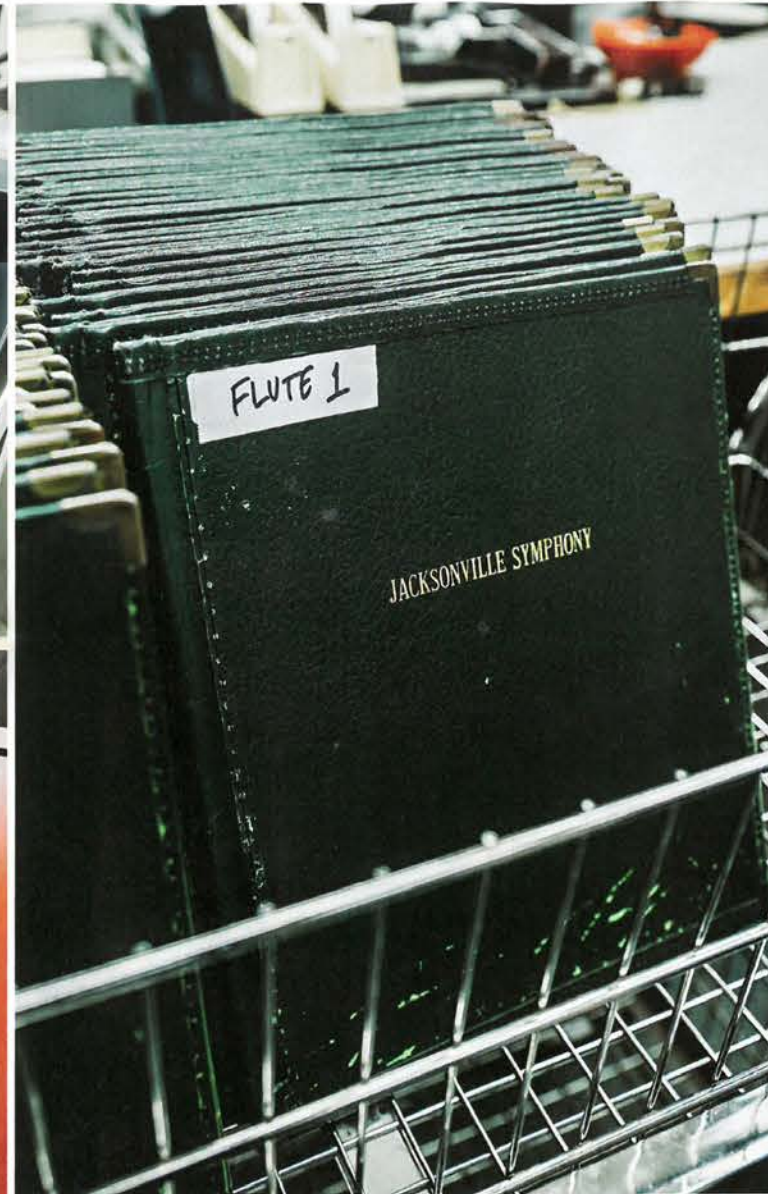 FLUTE 1
JACKSONVILLE SYMPHONY